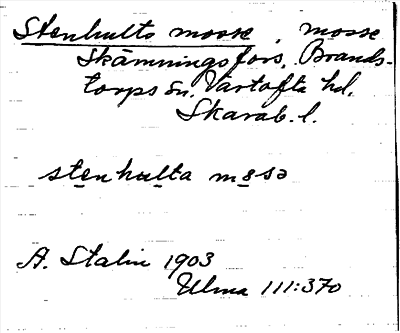 Stenhults mosse, mosse
Skämningsfors, Brands-
torps sn. Vartofta hd.
Skarab. l.
stenhulta mosə
A. Stalin 1903
Ulma 111:370